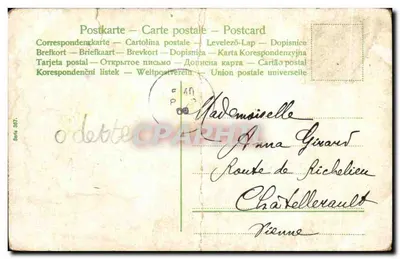 Postkarte — Carte postale — Postcard
Correspondenzkarte — Cartolina postale — Levelező-Lap — Dopisnice
Brefkort — Briefkaart — Brevkort — Dopisnica — Karta Korespondencyjna
Tarjeta postal — Открытое письмо — Дописна карта — Cartão postal
Korespondenční lístek — Weltpostverein — Union postale universelle
Mademoiselle
Anna Girard
Route de Richelieu
Châtellerault
Vienne
Serie 387.
CPAPHIL